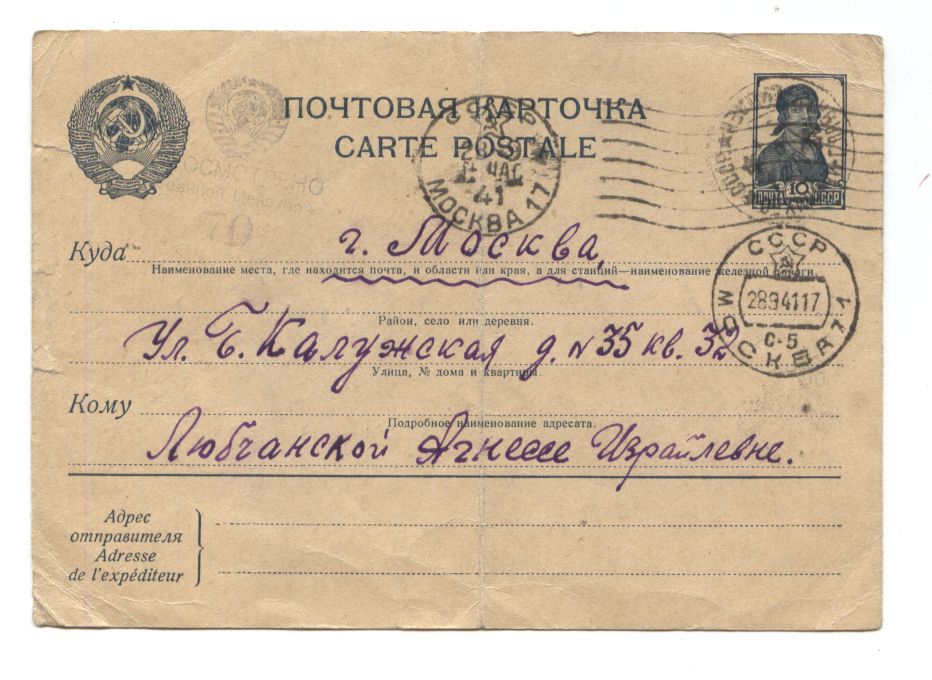 ПОЧТОВАЯ КАРТОЧКА
CARTE POSTALE
ПОЧТА 10 СССР
41
МОСКВА 17
70
Куда г. Москва,
Наименование места, где находится почта, и области или края, а для станций—наименование железной дороги.
СССР
2894117
С-5
МОСКВА 71
Район, село или деревня.
Ул. Б. Калужская д. N 35 кв. 32
Улица, № дома и квартиры.
Кому
Подробное наименование адресата.
Любчанской Агнессе Израйлевне.
Адрес
отправителя
Adresse
de l'expéditeur